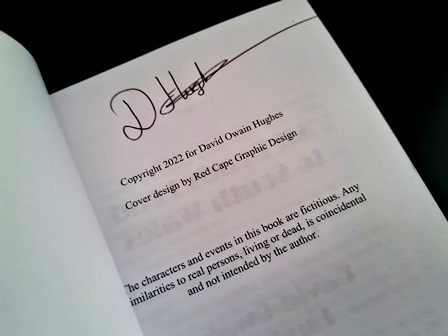 D Hughes
Copyright 2022 for David Owain Hughes
Cover design by Red Cape Graphic Design
he characters and events in this book are fictitious. Any
imilarities to real persons, living or dead, is coincidental
and not intended by the author.